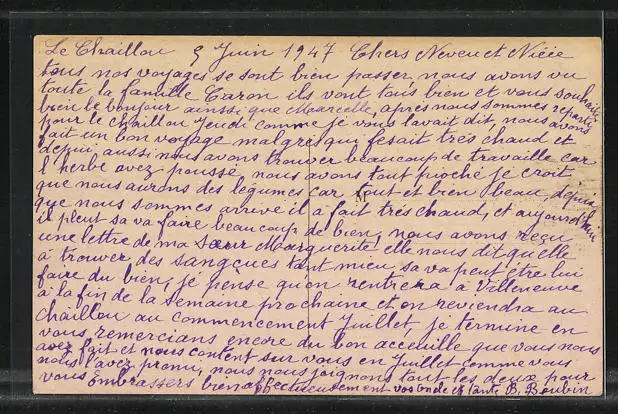 Le Chaillou 9 Juin 1947 Chers Neveu et Nièce
tous nos voyages se sont bien passer nous avons vu
toute la famille Caron ils vont tous bien et vous souhaite
bien le bonjour ainsi que Marcelle, après nous sommes reparti
pour le chaillou Jeudi comme je vous lavait dit, nous avons
fait un bon voyage malgre qui fesait très chaud et
depui aussi nous avons trouver beaucoup de travaille car
l'herbe avez poussé nous avons tout pioché je croit
que nous aurons des legumes car tout et bien beau, depui
que nous sommes arrivé il a fait très chaud, et aujourd'hui
il pleut sa va faire beaucoup de bien, nous avons reçu
une lettre de ma Sœur Marguerite elle nous dit quelle
à trouver des sangçues tant mieu, sa va peut être lui
faire du bien, je pense qu'on rentrera à Villeneuve
à la fin de la semaine prochaine et on reviendra au
chaillou au commencement Juillet, je termine en
vous remercians encore du bon acceuille que vous nous
avez fait et nous content sur vous en Juillet comme vous
nous l'avez promi, nous nous joignons tous les deux pour
vous Embrassers bien affectueusement vos oncle et tante B. Boubin